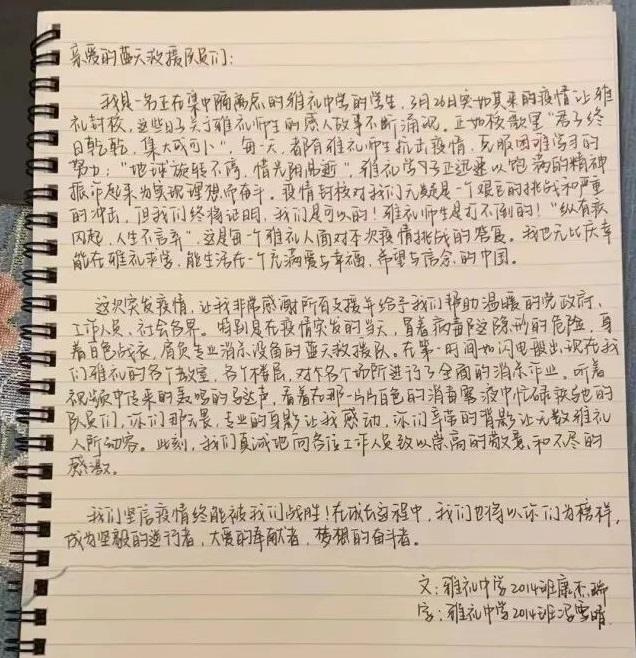 亲爱的蓝天救援队员们：
我是一名正在集中隔离点的雅礼中学的学生，3月26日突如其来的疫情让雅
礼封校，这些日子关于雅礼师生的感人故事不断涌现。正如校歌里“君子终
日乾乾，集大成可卜”，每一天，都有雅礼师生抗击疫情，克服困难学习的
努力；“地球旋转不停，惜光阴易逝”，雅礼学子正迅速以饱满的精神
振作起来为实现理想而奋斗。疫情封校对我们无疑是一个艰巨的挑战和严重
的冲击，但我们终将证明，我们是可以的！雅礼师生是打不倒的！“纵有疾
风起，人生不言弃”，这是每一个雅礼人面对本次疫情挑战的答复。我也无比庆幸
能在雅礼求学，能生活在一个充满爱与幸福，希望与信念的中国。
这次突发疫情，让我非常感谢所有支援并给予我们帮助温暖的党政府、
工作人员、社会各界。特别是在疫情突发的当天，冒着病毒这隐形的危险，身
着白色战衣，肩负专业消杀设备的蓝天救援队。在第一时间如闪电般出现在我
们雅礼的各个教室，各个楼层，对各个场所进行了全面的消杀作业。听着
视频中传来的轰鸣的马达声，看着在那一片片白色的消毒雾液中忙碌执着的
队员们，你们那无畏，专业的身影让我感动，你们辛苦的背影让无数雅礼
人所动容。此刻，我们真诚地向各位工作人员致以崇高的敬意和不尽的
感激。
我们坚信疫情终能被我们战胜！在成长过程中，我们也将以你们为榜样，
成为坚毅的逆行者，大爱的奉献者，梦想的奋斗者。
文：雅礼中学2014班康丕瑞
字：雅礼中学2014班冯雪晴